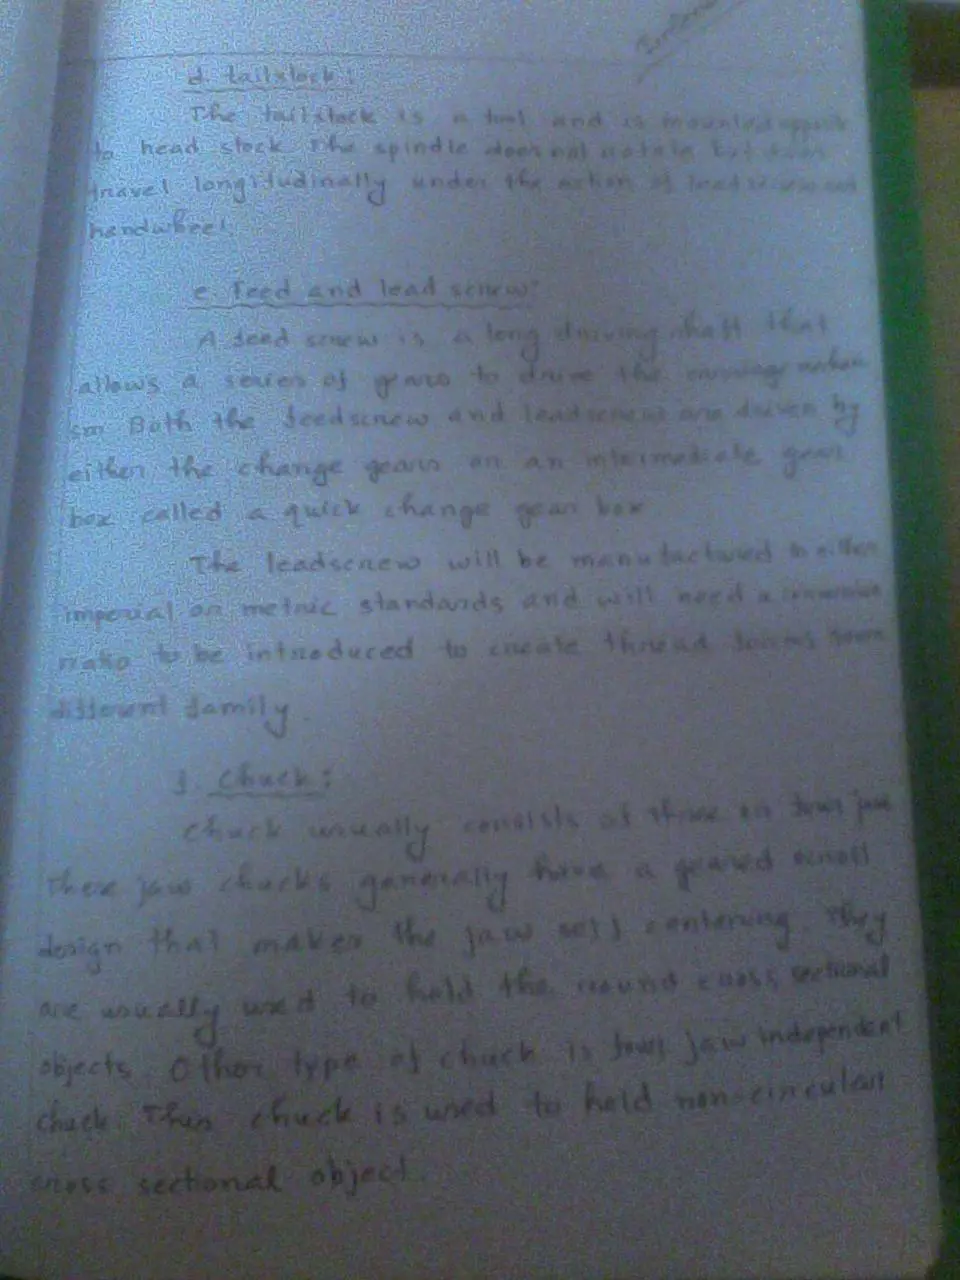 d. tailstock:
The tailstock is a tool and is mounted opposite
to head stock. The spindle does not rotate but does
travel longitudinally under the action of leadscrew and
handwheel.
e. Feed and lead screw:
A feed screw is a long driving shaft that
allows a series of gears to drive the carriage mechani
sm Both the feedscrew and leadscrew are driven by
either the change gears or an intermediate gear
box called a quick change gear box
The leadscrew will be manufactured to either
imperial or metric standards and will need a conversion
ratio to be introduced to create thread forms from
different family.
f. Chuck:
Chuck usually consists of three or four jaw
three jaw chucks generally have a geared scroll
design that makes the jaw self centering. They
are usually used to hold the round cross sectional
objects. Other type of chuck is four jaw independent
chuck. This chuck is used to hold non-circular
cross sectional object.